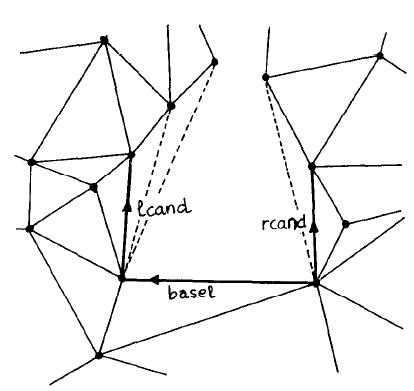 lcand
rcand
basel